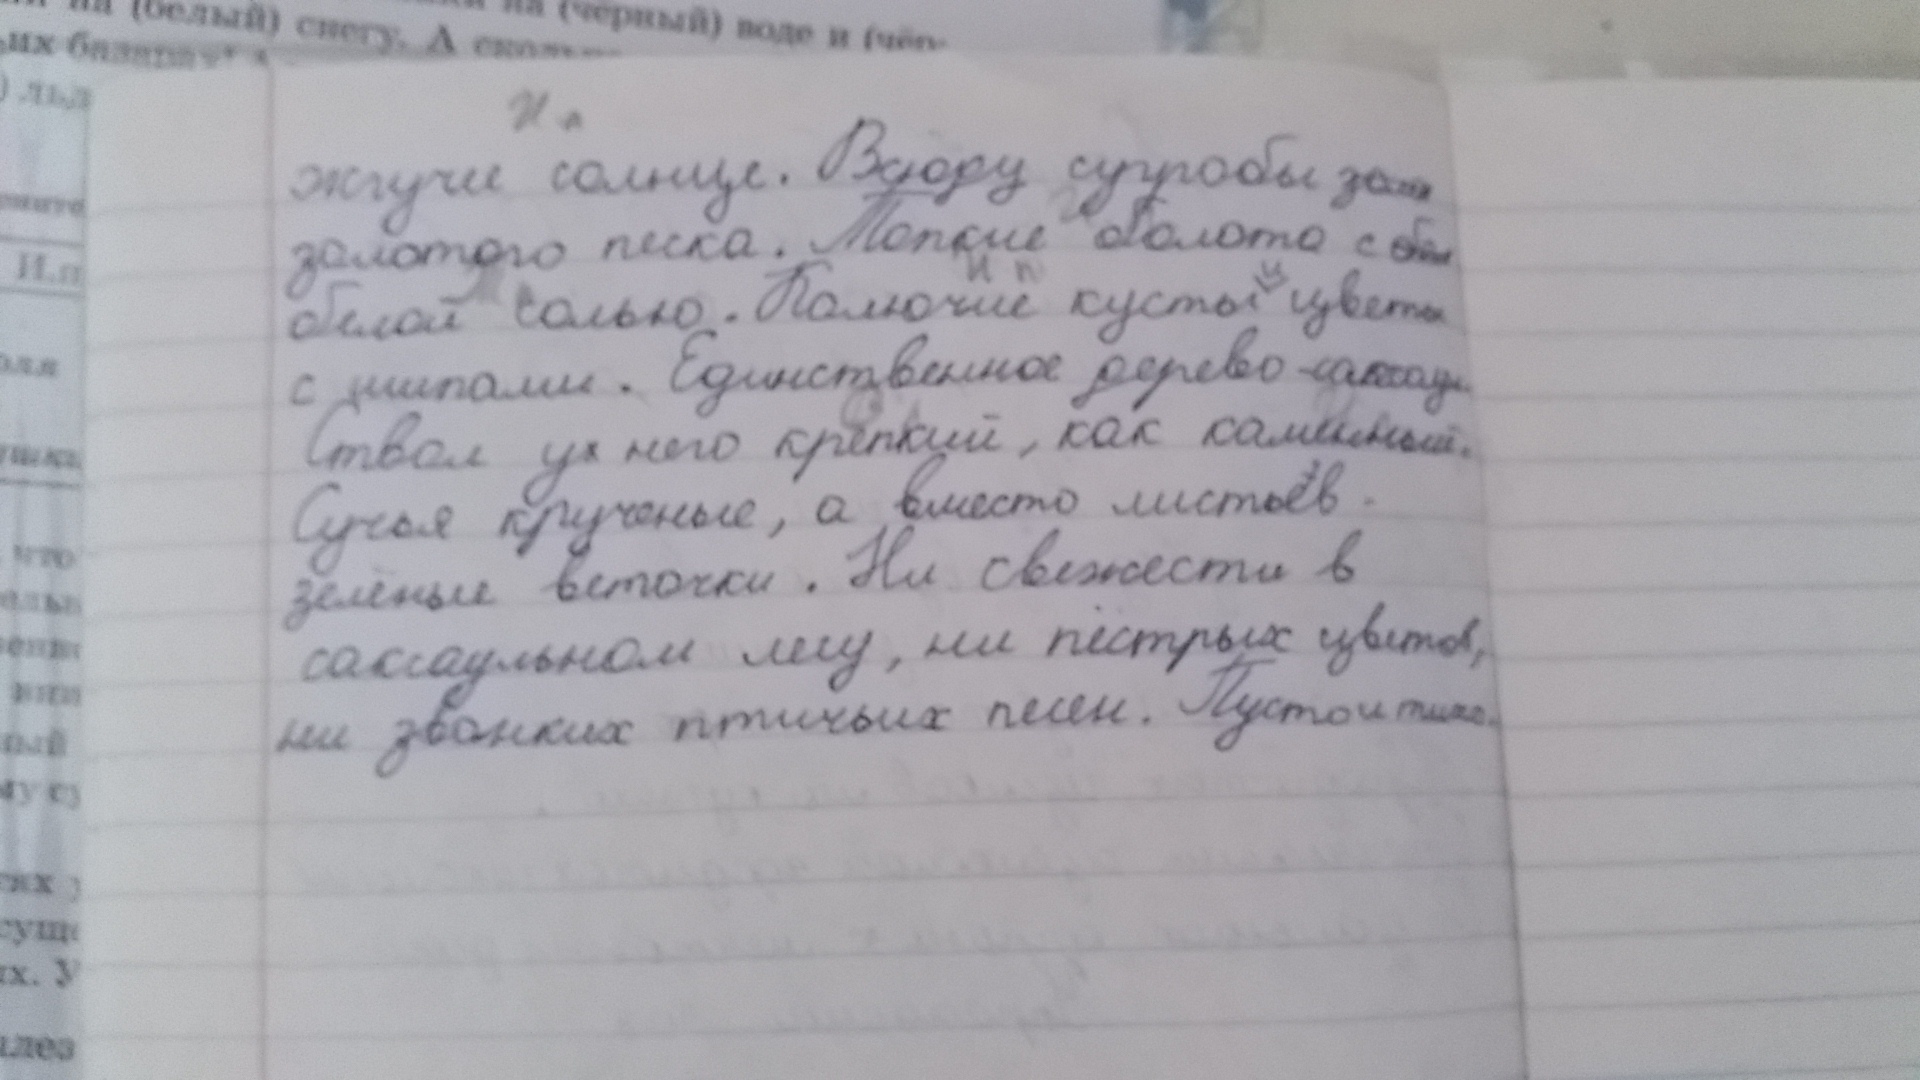 на (белый) снегу. А
на (чёрный) воде и (чёр-
их
) льд
И.п
что
ный
му су
сущ
их. У
И п
жгучи солнце. Вокру сугробы
золотого песка. Топкие болота с
И п
белой солью. Колючие кусты и цветы
с шипами. Единственное дерево - саксаул
Ствол у него крепкий, как каменный.
Сучья крученые, а вместо листьев -
зелёные веточки. Ни свежести в
саксаульном лесу, ни пёстрых цветов,
ни звонких птичьих песен. Пусто и тихо.